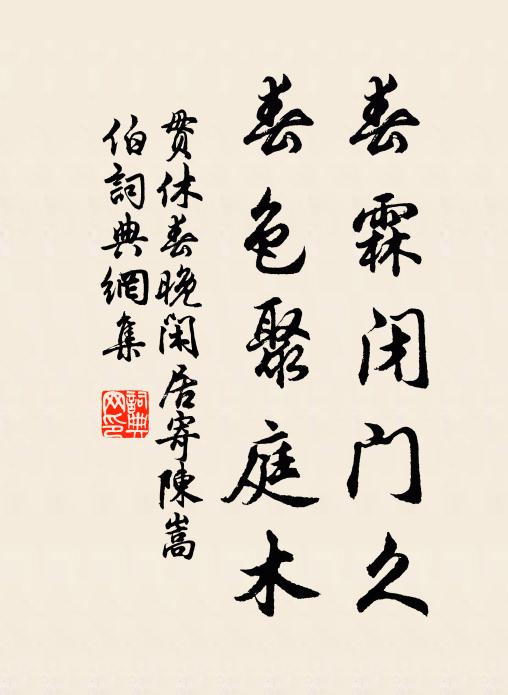 春霖闭门久
春色聚庭木
贯休春晚閑居寄陳嵩
伯詞典網集
詞典
网印